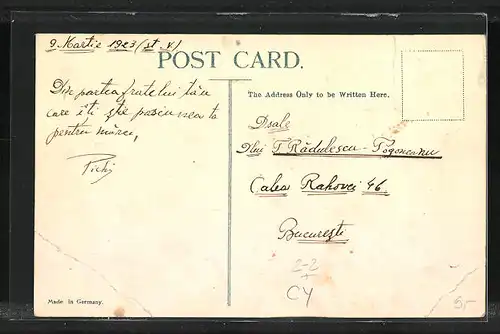 9 Martie 1923 (st. v.)
POST CARD.
Din partea fratelui tău
care îti știe pasiunea ta
pentru mărci,
The Address Only to be Written Here.
Dsale
Dlui T. Rădulescu-Pogoneanu
Calea Rahovei 46
București
2-2
CY
Made in Germany.